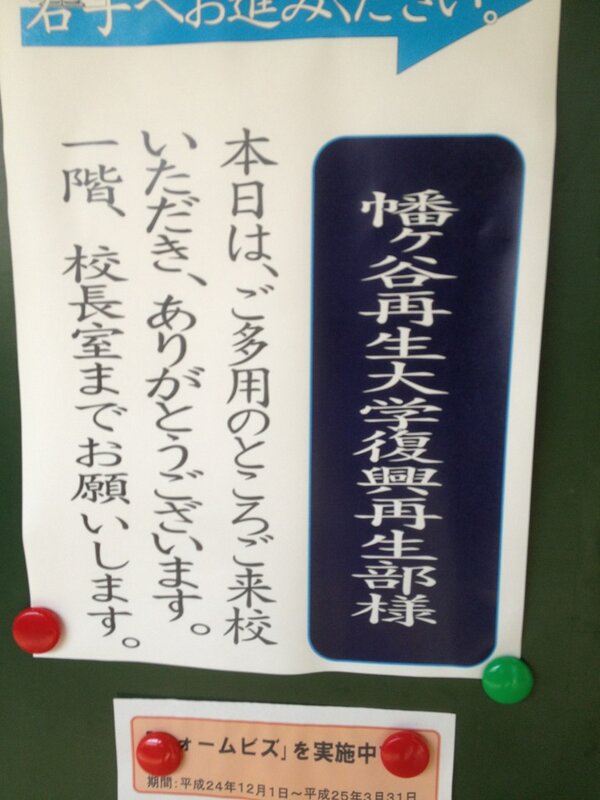 へお進みください。
幡ヶ谷再生大学復興再生部様
本日は、ご多用のところご来校
いただき、ありがとうございます。
一階、校長室までお願いします。
ォームビズ」を実施中
期間:平成24年12月1日~平成25年3月31日